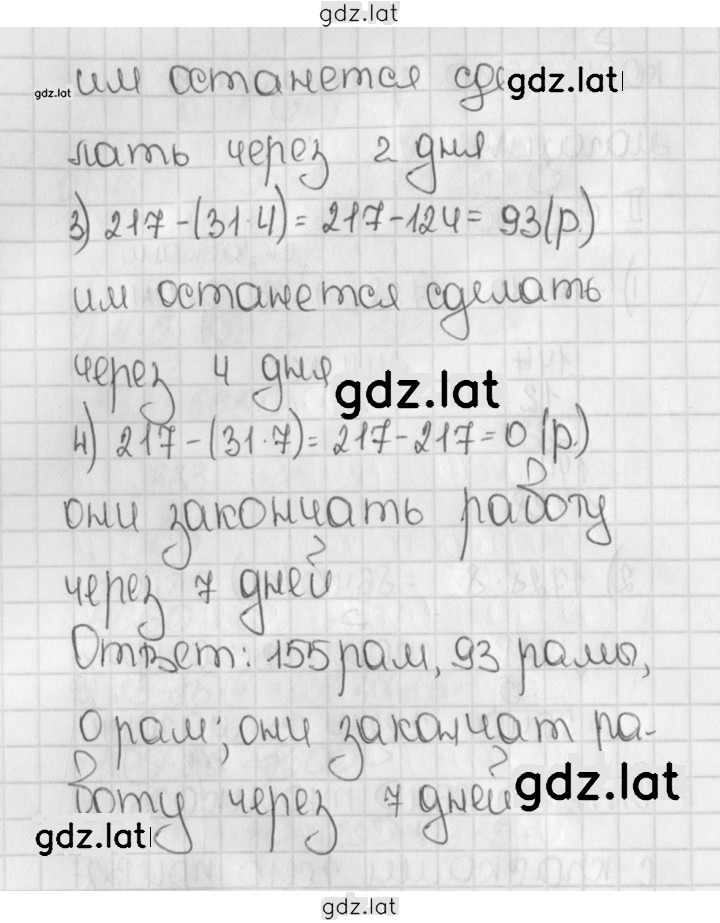 gdz.lat
им останется сде
gdz.lat
gdz.lat
лать через 2 дня
3) 217-(31·4)= 217-124= 93(р.)
им останется сделать
через 4 дня
gdz.lat
4) 217-(31·7)=217-217=0(р.)
они закончать работу
через 7 дней
Ответ: 155 рам, 93 рамы,
0 рам; они закончат ра-
боту через 7 дней
gdz.lat
gdz.lat
gdz.lat